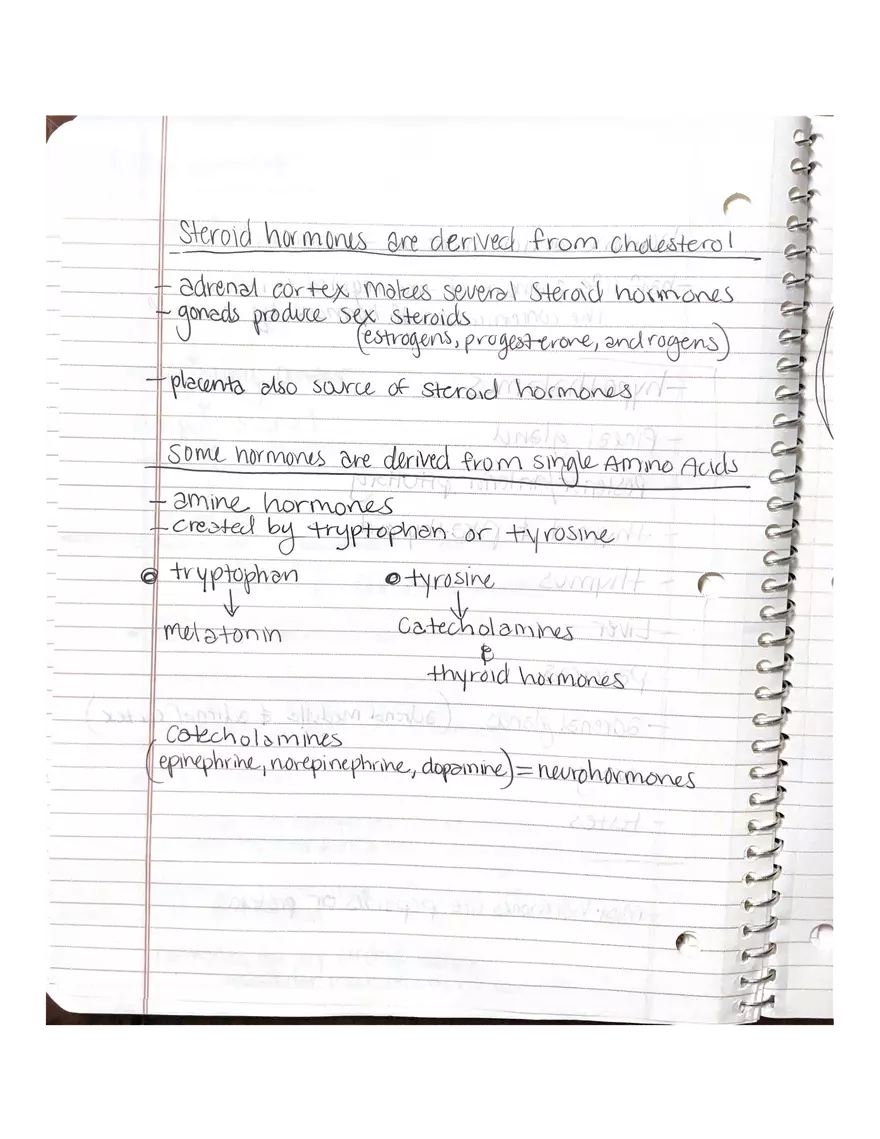 Steroid hormones are derived from cholesterol
- adrenal cortex makes several steroid hormones
- gonads produce sex steroids
(estrogens, progesterone, androgens)
- placenta also source of steroid hormones
Some hormones are derived from single Amino Acids
- amine hormones
- created by tryptophan or tyrosine
tryptophan • tyrosine
↓ ↓
melatonin Catecholamines
&
thyroid hormones
Catecholamines
(epinephrine, norepinephrine, dopamine) = neurohormones